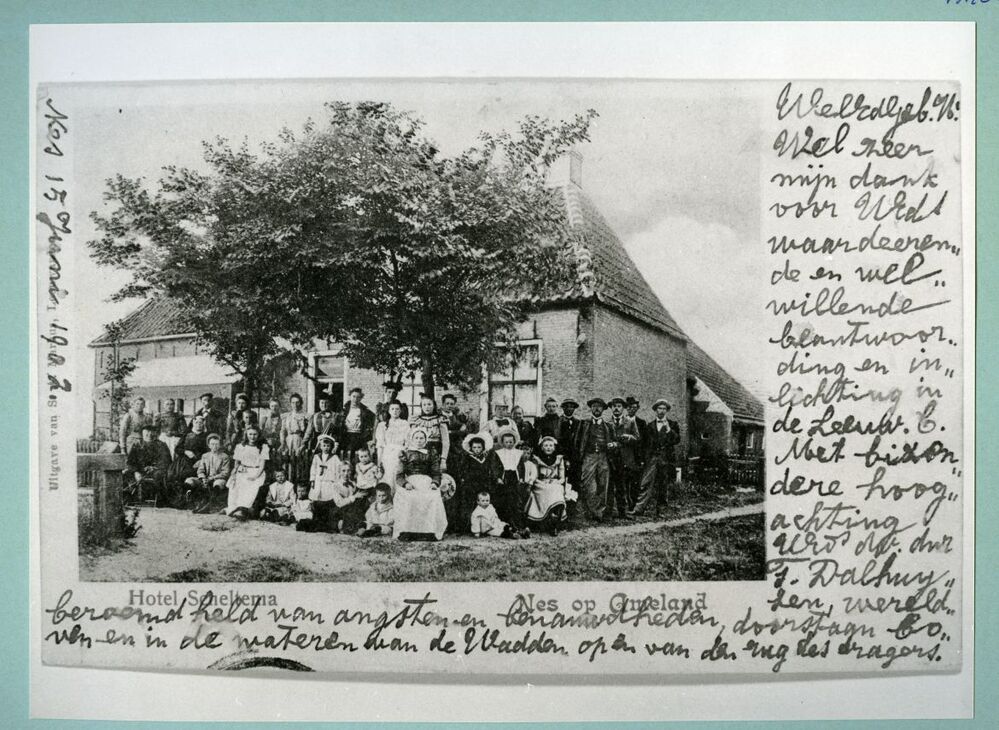 WelEdgeb. H:
Wel zeer
mijn dank
voor UEds
waardeeren„
de en wel„
willende
beantwoor„
ding en in„
lichting in
de Leeuw. C.
Met bizon„
dere hoog„
achting
UEds dw. dnr
F. Dalhuy„
sen, wereld„
beroemd held van angsten en benauwdheden, doorstaan bo„
ven en in de wateren van de Wadden op en van den rug des dragers.
Nes 15 Juni 1902.
Uitgave van
Hotel Scheltema
Nes op Ameland